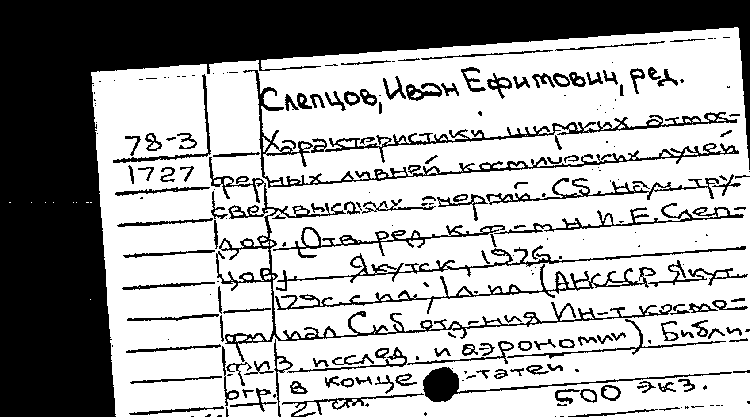 Слепцов, Иван Ефимович, ред.
78-3 Характеристики широких атмос-
1727 ферных ливней космических лучей
сверхвысоких энергий. Сб. науч. тру-
дов. [Отв. ред. к. ф.-м. н. И. Е. Слеп-
цов]. Якутск, 1976.
179с. с ил.; 1л. ил (АН СССР. Якут.
филиал Сиб отд-ния Ин-т космо-
физ. исслед. и аэрономии). Библи-
огр. в конце статей.
21 см. 500 экз.